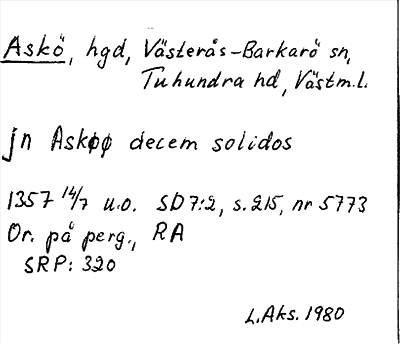 Askö, hgd, Västerås-Barkarö sn,
Tuhundra hd, Västm.l.
jn Askøø decem solidos
1357 14/7 u.o. SD 7:2, s. 215, nr 5773
Or. på perg., RA
SRP: 320
L.Aks. 1980